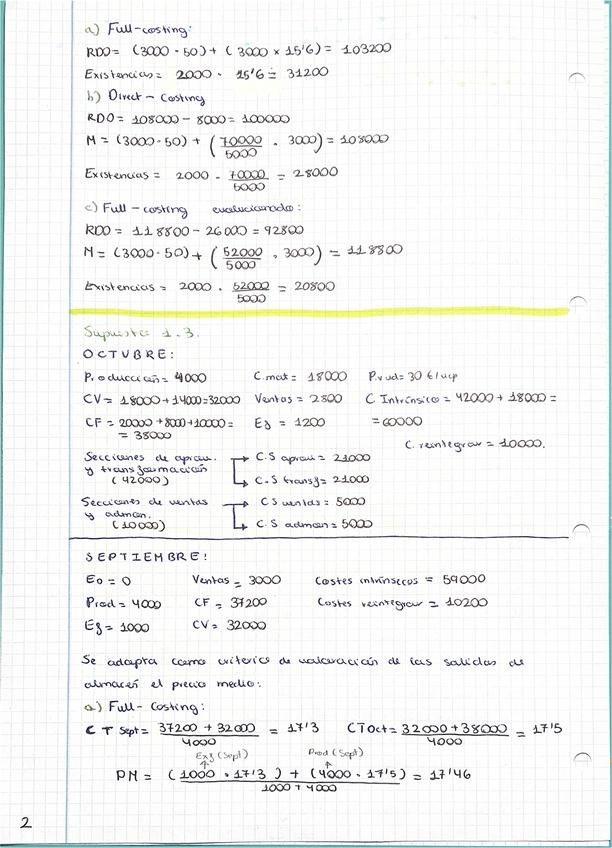 a) Full-costing:
RDO = (3000 · 50) + (3000 x 15'6) = 103200
Existencias = 2000 · 15'6 = 31200
b) Direct-Costing
RDO = 108000 - 8000 = 100000
M = (3000·50) + (70000/5000 · 3000) = 108000
Existencias = 2000 · 70000/5000 = 28000
c) Full-costing evolucionado:
RDO = 118800 - 26000 = 92800
M = (3000·50) + (52000/5000 · 3000) = 118800
Existencias = 2000 · 52000/5000 = 20800
Supuesto 1.3.
OCTUBRE:
Producción = 4000 C.mat = 18000 P.vud = 30 €/ucp
CV = 18000 + 14000 = 32000 Ventas = 2800 C Intrínsico = 42000 + 18000 =
CF = 20000 + 8000 + 10000 = Ef = 1200 = 60000
= 38000 C. reintegrar = 10000.
Secciones de aprov. → C.S aprov = 21000
y transformación
(42000) → C.S transf = 21000
Secciones de ventas → CS ventas = 5000
y admon.
(10000) → C.S admon = 5000
SEPTIEMBRE:
Eo = 0 Ventas = 3000 Costes intrínsecos = 59000
Prod = 4000 CF = 37200 Costes reintegrar = 10200
Ef = 1000 CV = 32000
Se adapta como criterio de valoración de las salidas de
almacén el precio medio:
a) Full-Costing:
CT Sept = 37200 + 32000/4000 = 17'3 CToct = 32000 + 38000/4000 = 17'5
Exf (Sept) Prod (Sept)
PM = (1000 · 17'3) + (4000 · 17'5)/1000 + 4000 = 17'46
2